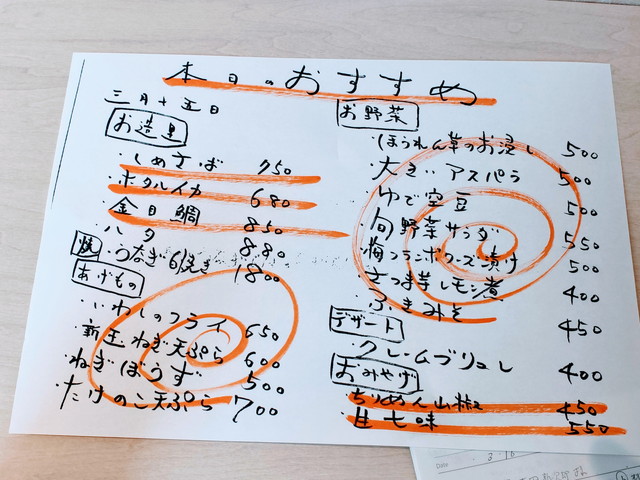 本日のおすすめ
三月十五日
お造里
・しめさば 750
・ホタルイカ 680
・金目鯛 850
・ハタ 880
焼 ・うなぎ白焼き 1800
あげもの
・いわしのフライ 650
・新玉ねぎ天ぷら 600
・ねぎぼうず 500
・たけのこ天ぷら 700
お野菜
・ほうれん草のお浸し 500
・大きいアスパラ 500
・ゆで空豆 500
・旬野菜サラダ 550
・梅フランボワーズ漬け 500
・さつま芋レモン煮 400
・ふきみそ 450
デザート
・クレームブリュレ 400
おみやげ
・ちりめん山椒 450
・生七味 550
Date